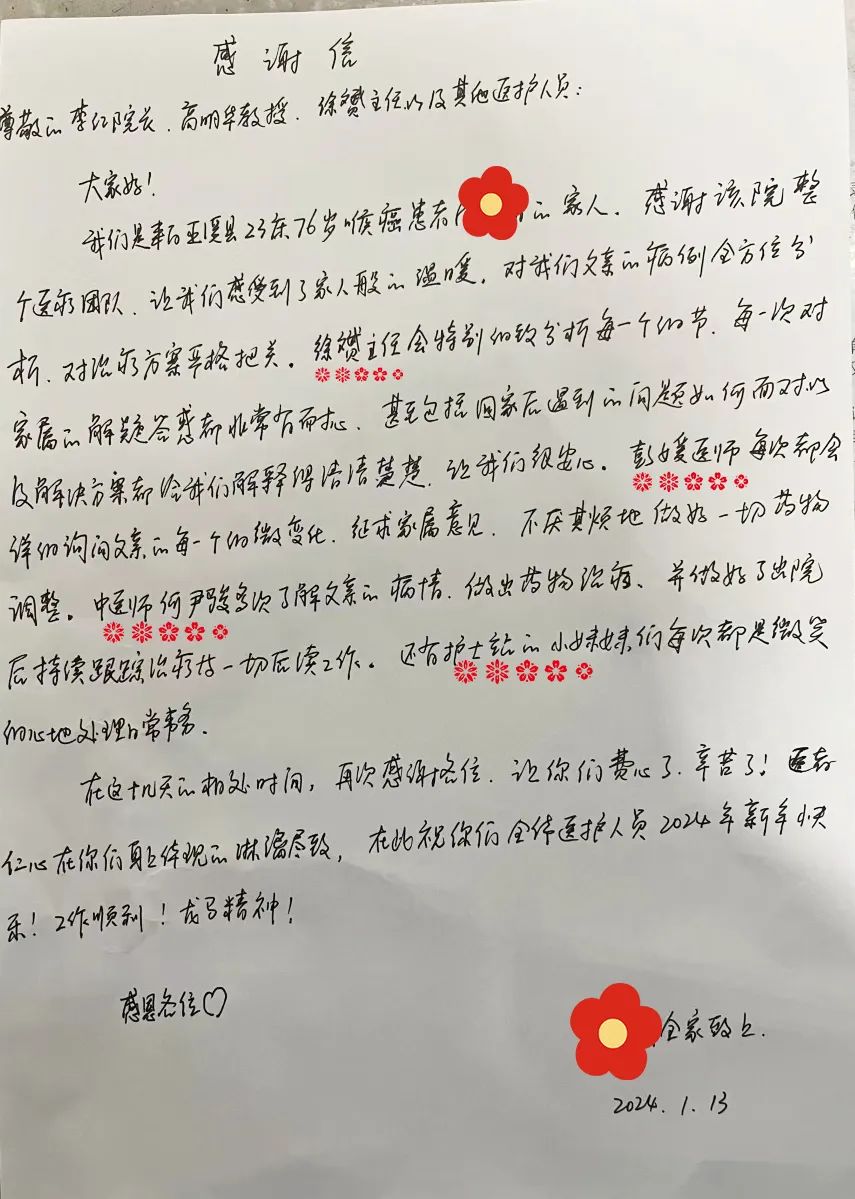 感谢信
尊敬的李仁院长、高明华教授、徐赟主任以及其他医护人员:
大家好!
我们是来自巫溪县23床76岁喉癌患者 的家人. 感谢该院整
个医疗团队、让我们感受到了家人般的温暖. 对我们父亲的病例全方位分
析、对治疗方案严格把关。徐赟主任会特别细致分析每一个细节、每一次对
家属的解疑答惑都非常有耐心、甚至包括回家后遇到的问题如何面对以
及解决方案都给我们解释得清清楚楚、让我们很安心。彭媛医师每次都会
详细询问父亲的每一个细微变化、征求家属意见、不厌其烦地做好一切药物
调整。中医师何尹骏多次了解父亲的病情、做出药物治疗、并做好了出院
后持续跟踪治疗 一切后续工作。还有护士站的小妹妹们每次都是微笑
细心地处理日常事务.
在这十几天的相处时间, 再次感谢各位、让你们费心了、辛苦了! 医者
仁心在你们身上体现的淋漓尽致, 在此祝你们全体医护人员2024年新年快
乐! 工作顺利! 龙马精神!
感恩各位♡
全家致上.
2024.1.13